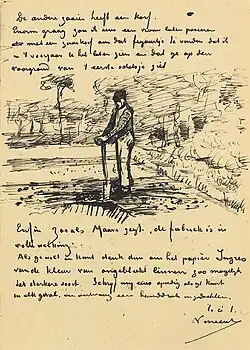 De andere zaaier heeft een korf.
Enorm graag zou ik eens een vrouw laten poseeren
met een zaaikorf om dat figuurtje te vinden dat ik
in 't voorjaar U heb laten zien en dat ge op den
voorgrond van 't eerste schetsje ziet
Enfin zooals Mauve zegt, de fabriek is in
volle werking.
Als ge wilt en kunt denk dan om het papier Ingres
van de kleur van ongebleekt linnen zoo mogelijk
het sterkere soort. Schrijf mij eens spoedig als ge kunt
in elk geval, en ontvang een handdruk in gedachten.
t. à t.
Vincent